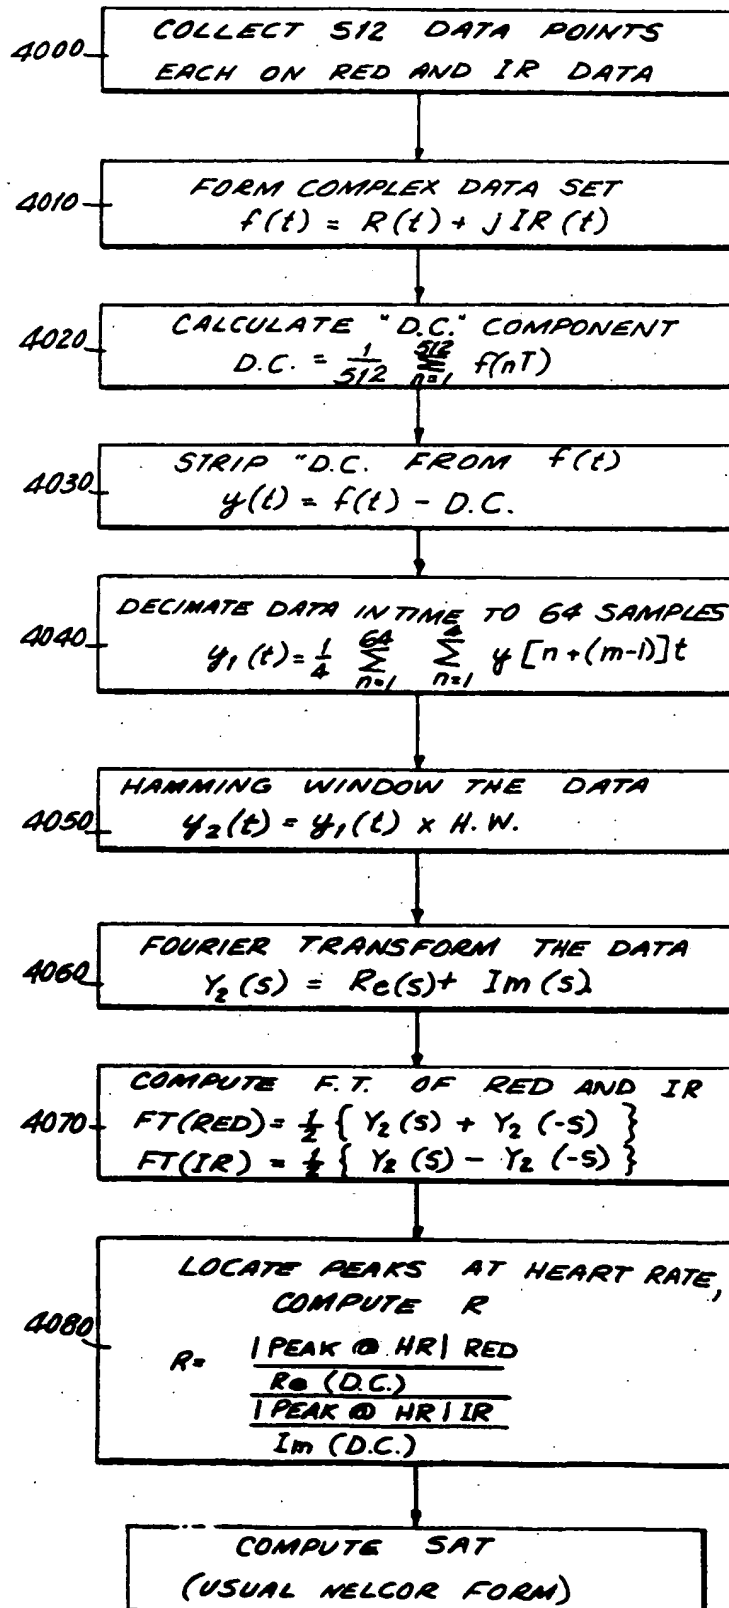 4000
COLLECT 512 DATA POINTS
EACH ON RED AND IR DATA
4010
FORM COMPLEX DATA SET
f(t) = R(t) + jIR(t)
4020
CALCULATE "D.C." COMPONENT
D.C. = 1/512 512 Σ n=1 f(nT)
4030
STRIP "D.C. FROM f(t)
y(t) = f(t) - D.C.
4040
DECIMATE DATA IN TIME TO 64 SAMPLES
y₁(t) = 1/4 64 Σ n=1 4 Σ n=1 y[n+(m-1)]t
4050
HAMMING WINDOW THE DATA
y₂(t) = y₁(t) x H.W.
4060
FOURIER TRANSFORM THE DATA
Y₂(s) = Re(s) + Im(s)
4070
COMPUTE F.T. OF RED AND IR
FT(RED) = 1/2 { Y₂(s) + Y₂(-s) }
FT(IR) = 1/2 { Y₂(s) - Y₂(-s) }
4080
LOCATE PEAKS AT HEART RATE,
COMPUTE R
R=
|PEAK @ HR| RED
Re (D.C.)
|PEAK @ HR| IR
Im (D.C.)
COMPUTE SAT
(USUAL NELCOR FORM)